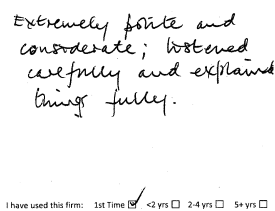 Extremely polite and
considerate; listened
carefully and explained
things fully.
I have used this firm: 1st Time ☑ <2 yrs ☐ 2-4 yrs ☐ 5+ yrs ☐